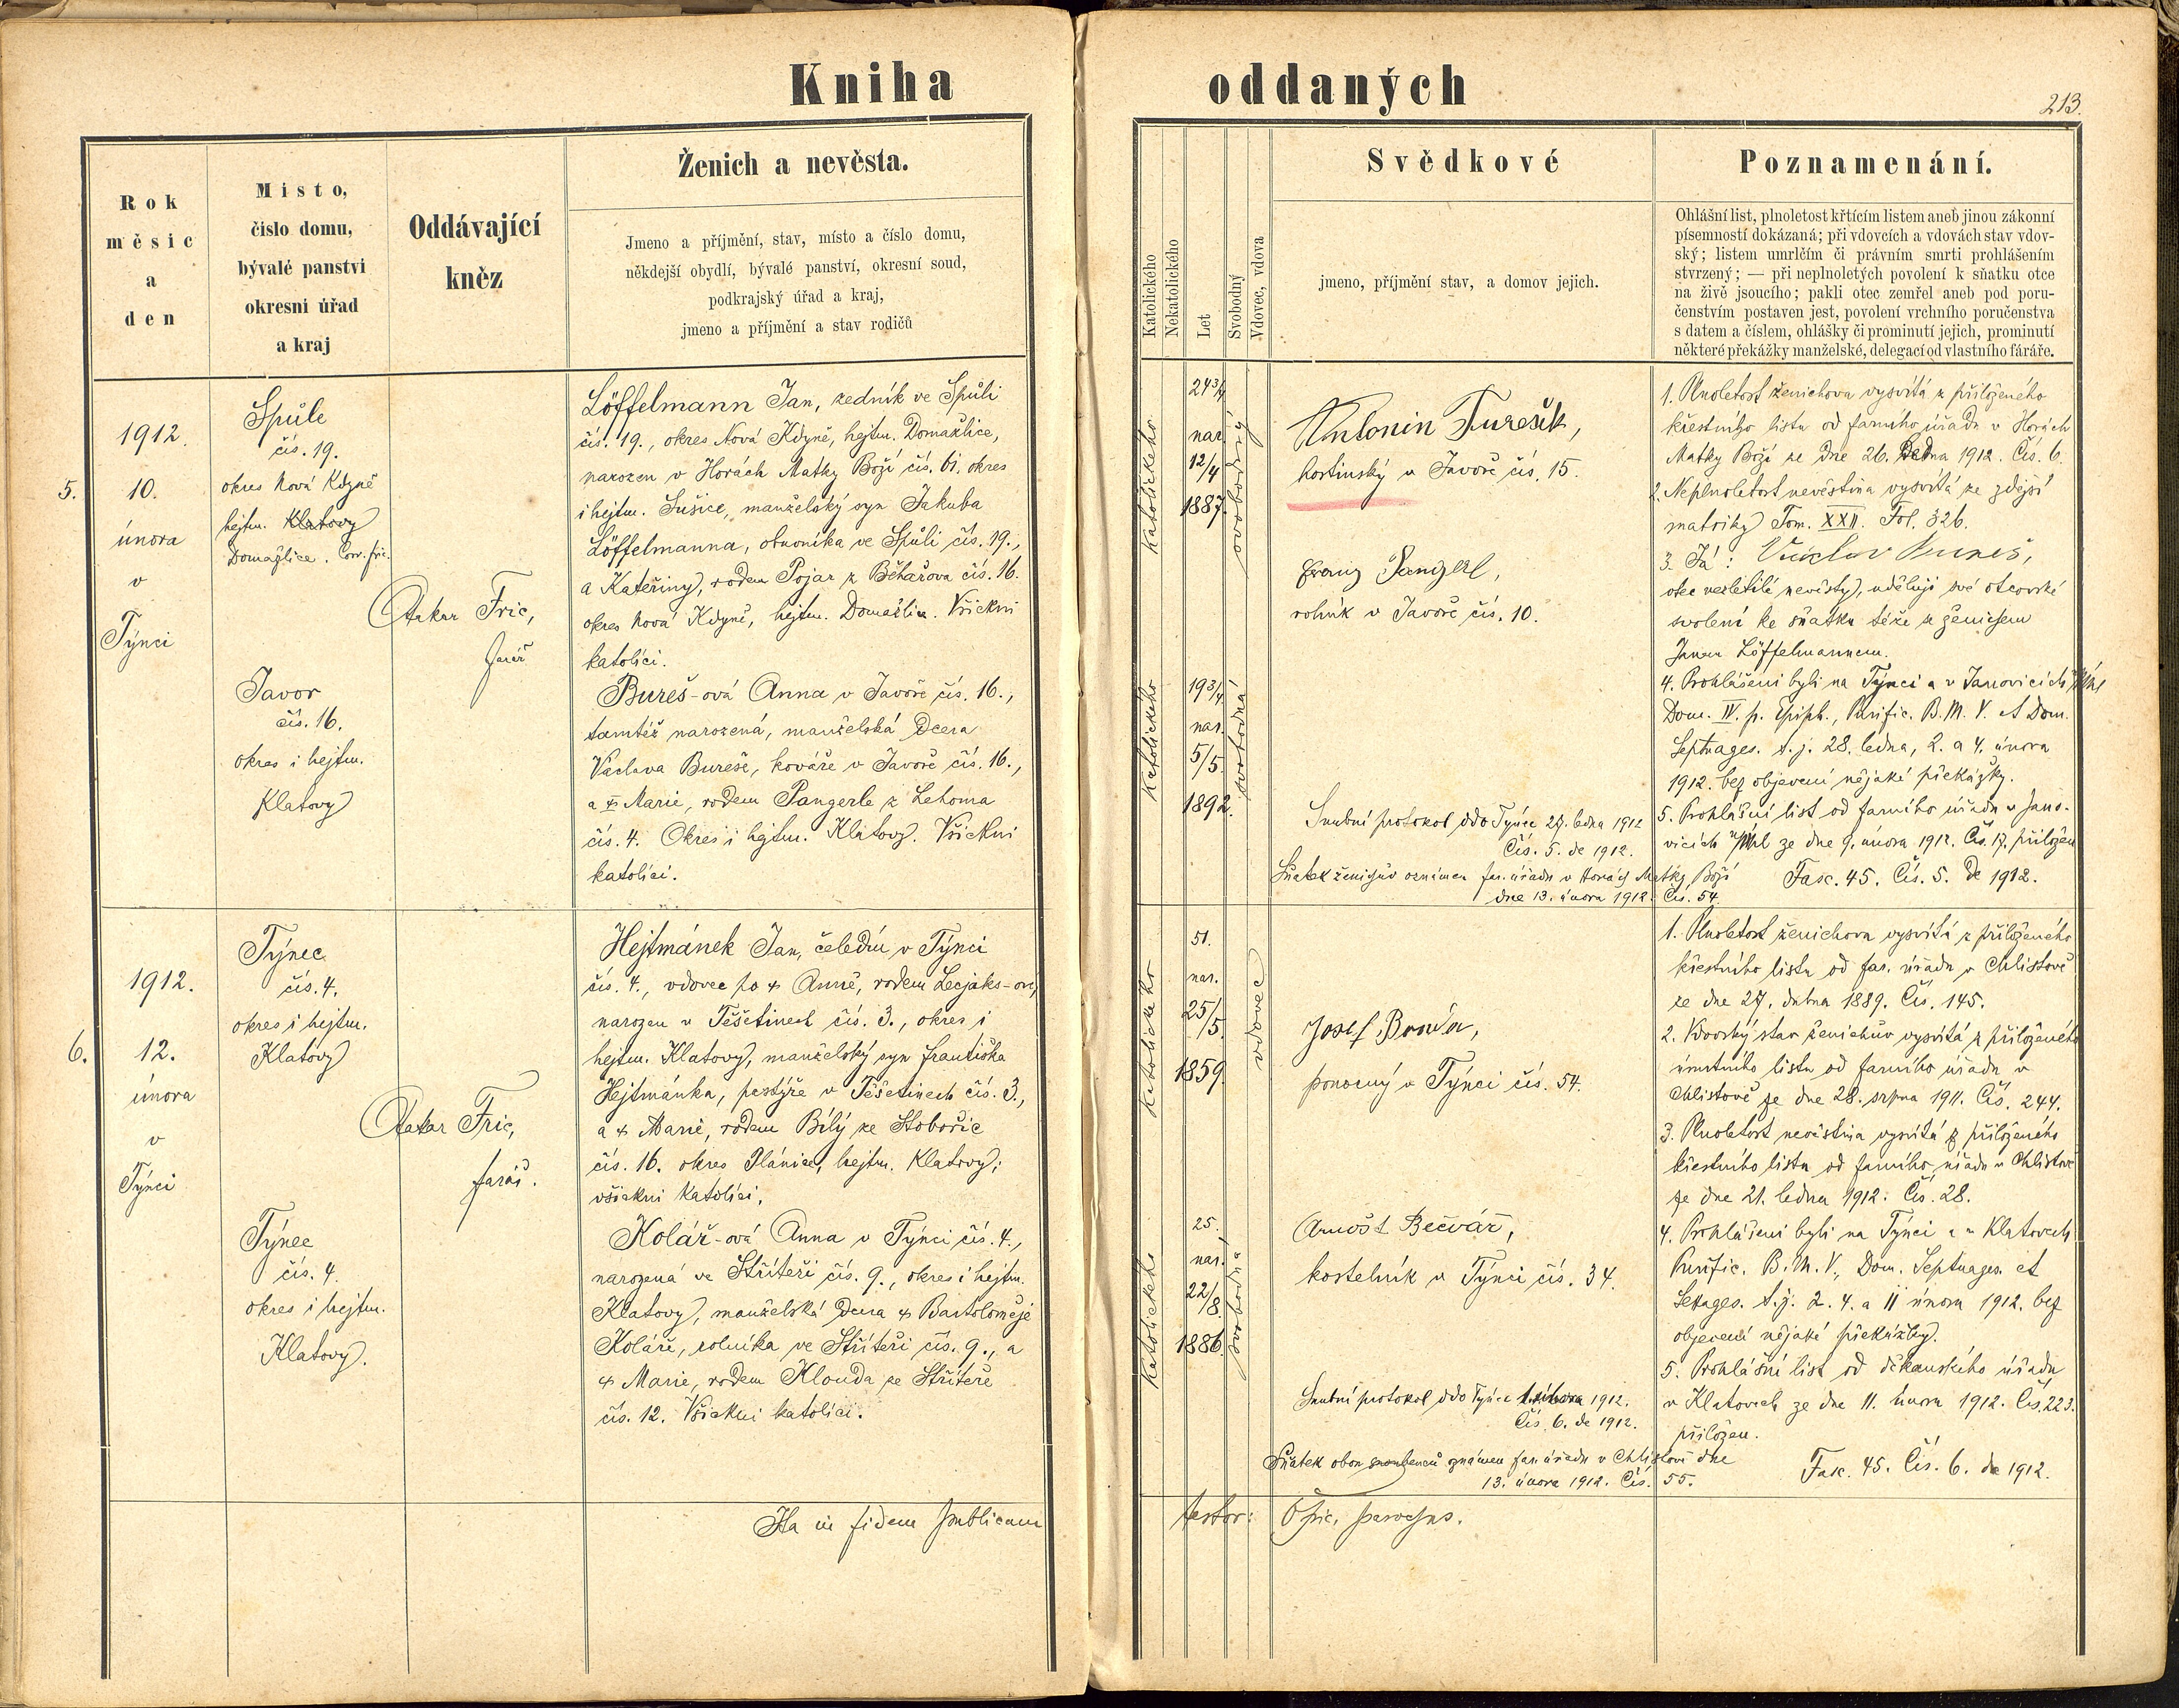 Kniha oddaných
213.
Rok
měsíc
a
den
Místo,
číslo domu,
bývalé panství
okresní úřad
a kraj
Oddávající
kněz
Ženich a nevěsta.
Jmeno a příjmění, stav, místo a číslo domu,
někdejší obydlí, bývalé panství, okresní soud,
podkrajský úřad a kraj,
jmeno a příjmění a stav rodičů
Katolického
Nekatolického
Let
Svobodný
Vdovec, vdova
Svědkové
jmeno, příjmění stav, a domov jejich.
Poznamenání.
Ohlášní list, plnoletost křtícím listem aneb jinou zákonní
písemností dokázaná; při vdovcích a vdovách stav vdov-
ský; listem umrlčím či právním smrti prohlášením
stvrzený; — při neplnoletých povolení k sňatku otce
na živě jsoucího; pakli otec zemřel aneb pod poru-
čenstvím postaven jest, povolení vrchního poručenstva
s datem a číslem, ohlášky či prominutí jejich, prominutí
některé překážky manželské, delegací od vlastního faráře.
5.
1912.
10.
února
v
Týnci
Spůle
čís. 19.
okres Nová Kdyně
hejtm. Klatovy
Domažlice. Corr. Fric.
Javor
čís. 16.
okres i hejtm.
Klatovy
Otakar Fric,
farář
Löffelmann Jan, zedník ve Spůli
čís. 19., okres Nová Kdyně, hejtm. Domažlice,
narozen v Horách Matky Boží čís. 61. okres
i hejtm. Sušice, manželský syn Jakuba
Löffelmanna, obuvníka ve Spůli čís. 19.,
a Kateřiny, rodem Pojar z Běhařova čís. 16.
okres Nová Kdyně, hejtm. Domažlice. Všickni
katolíci.
Bureš-ová Anna v Javoře čís. 16.,
tamtéž narozená, manželská dcera
Václava Bureše, kováře v Javoře čís. 16.,
a Marie, rodem Pangerle z Lehoma
čís. 4. Okres i hejtm. Klatovy. Všickni
katolíci.
Katolického
24 3/4
nar.
12/4
1887.
svobodný
Katolického
19 3/4
nar.
5/5.
1892.
svobodná
Antonín Turešek,
hostinský v Javoře čís. 15.
Franz Pangerl,
rolník v Javoře čís. 10.
Snubní protokol ddo Týnec 27. ledna 1912
Čís. 5. de 1912.
Sňatek ženichův oznámen far. úřadu v Horách Matky Boží
dne 13. února 1912. Čís. 54.
1. Plnoletost ženichova vysvítá z přiloženého
křestního listu od farního úřadu v Horách
Matky Boží ze dne 26. ledna 1912. Čís. 6.
2. Neplnoletost nevěstina vysvítá ze zdejší
matriky Tom. XXII. Fol. 326.
3. Já: Václav Bureš,
otec nezletilé nevěsty, uděluji své otcovské
svolení ke sňatku téže se ženichem
Janem Löffelmannem.
4. Prohlášeni byli na Týnci a v Janovicích
Dom. IV. p. Epiph., Purific. B. M. V. et Dom.
Septuages. t. j. 28. ledna, 2. a 4. února
1912. bez objevení nějaké překážky.
5. Prohlášní list od farního úřadu v Jano-
vicích ze dne 9. února 1912. Čís. 17. přiložen
Fasc. 45. Čís. 5. de 1912.
6.
1912.
12.
února
v
Týnci
Týnec
čís. 4.
okres i hejtm.
Klatovy
Týnec
čís. 4.
okres i hejtm.
Klatovy.
Otakar Fric,
farář.
Hejtmánek Jan, čeledín v Týnci
čís. 4., vdovec po + Anně, rodem Lecjaks-ové,
narozen v Těšetinech čís. 3., okres i
hejtm. Klatovy, manželský syn Františka
Hejtmánka, pastýře v Těšetinech čís. 3.,
a + Marie, rodem Bílý ze Stobořic
čís. 16. okres Plánice, hejtm. Klatovy;
všickni katolíci.
Kolář-ová Anna v Týnci čís. 4.,
narozená ve Stříteži čís. 9., okres i hejtm.
Klatovy, manželská dcera + Bartoloměje
Koláře, rolníka ve Stříteži čís. 9., a
+ Marie, rodem Klouda ze Stříteže
čís. 12. Všickni katolíci.
Katolického
51.
nar.
25/5.
1859.
vdovec
Katolického
25.
nar.
22/8.
1886.
svobodná
Josef
ponocný v Týnci čís. 54.
Arnošt Bečvář,
kostelník v Týnci čís. 34.
Snubní protokol ddo Týnec 1. února 1912.
Čís. 6. de 1912.
Sňatek obou snoubenců oznámen far. úřadu v Chlistově dne
13. února 1912. Čís. 55.
1. Plnoletost ženichova vysvítá z přiloženého
křestního listu od far. úřadu v Chlistově
ze dne 27. dubna 1889. Čís. 145.
2. Vdovský stav ženichův vysvítá z přiloženého
úmrtního listu od farního úřadu v
Chlistově ze dne 28. srpna 1911. Čís. 244.
3. Plnoletost nevěstina vysvítá z přiloženého
křestního listu od farního úřadu v Chlistově
ze dne 21. ledna 1912. Čís. 28.
4. Prohlášeni byli na Týnci a v Klatovech
Purific. B. M. V., Dom. Septuages. et
Sexages. t. j. 2. 4. a 11 února 1912. bez
objevení nějaké překážky.
5. Prohlášní list od děkanského úřadu
v Klatovech ze dne 11. února 1912. Čís. 223.
přiložen.
Fasc. 45. Čís. 6. de 1912.
Ita in fidem publicam testor: O Fric, parochus.